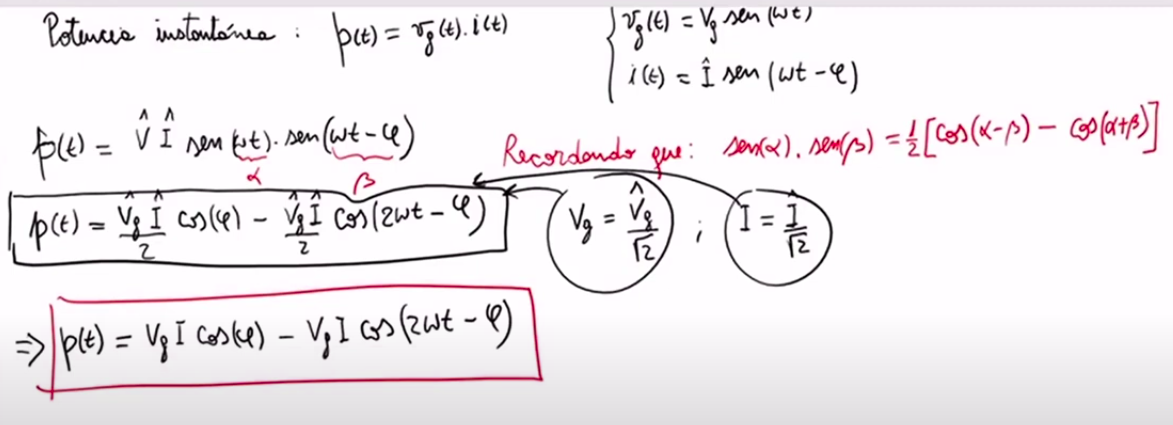 Potencia instantánea : p(t) = v_g(t) . i(t)
{ v_g(t) = V̂_g sen (ωt)
i(t) = Î sen (ωt - φ)
p(t) = V̂ Î sen (ωt) . sen (ωt - φ)
α β
Recordando que: sen(α) . sen(β) = 1/2 [cos(α-β) - cos(α+β)]
p(t) = V̂_g Î / 2 cos(φ) - V̂_g Î / 2 cos(2ωt - φ)
V_g = V̂_g / √2 ; I = Î / √2
⇒ p(t) = V_g I cos(φ) - V_g I cos(2ωt - φ)